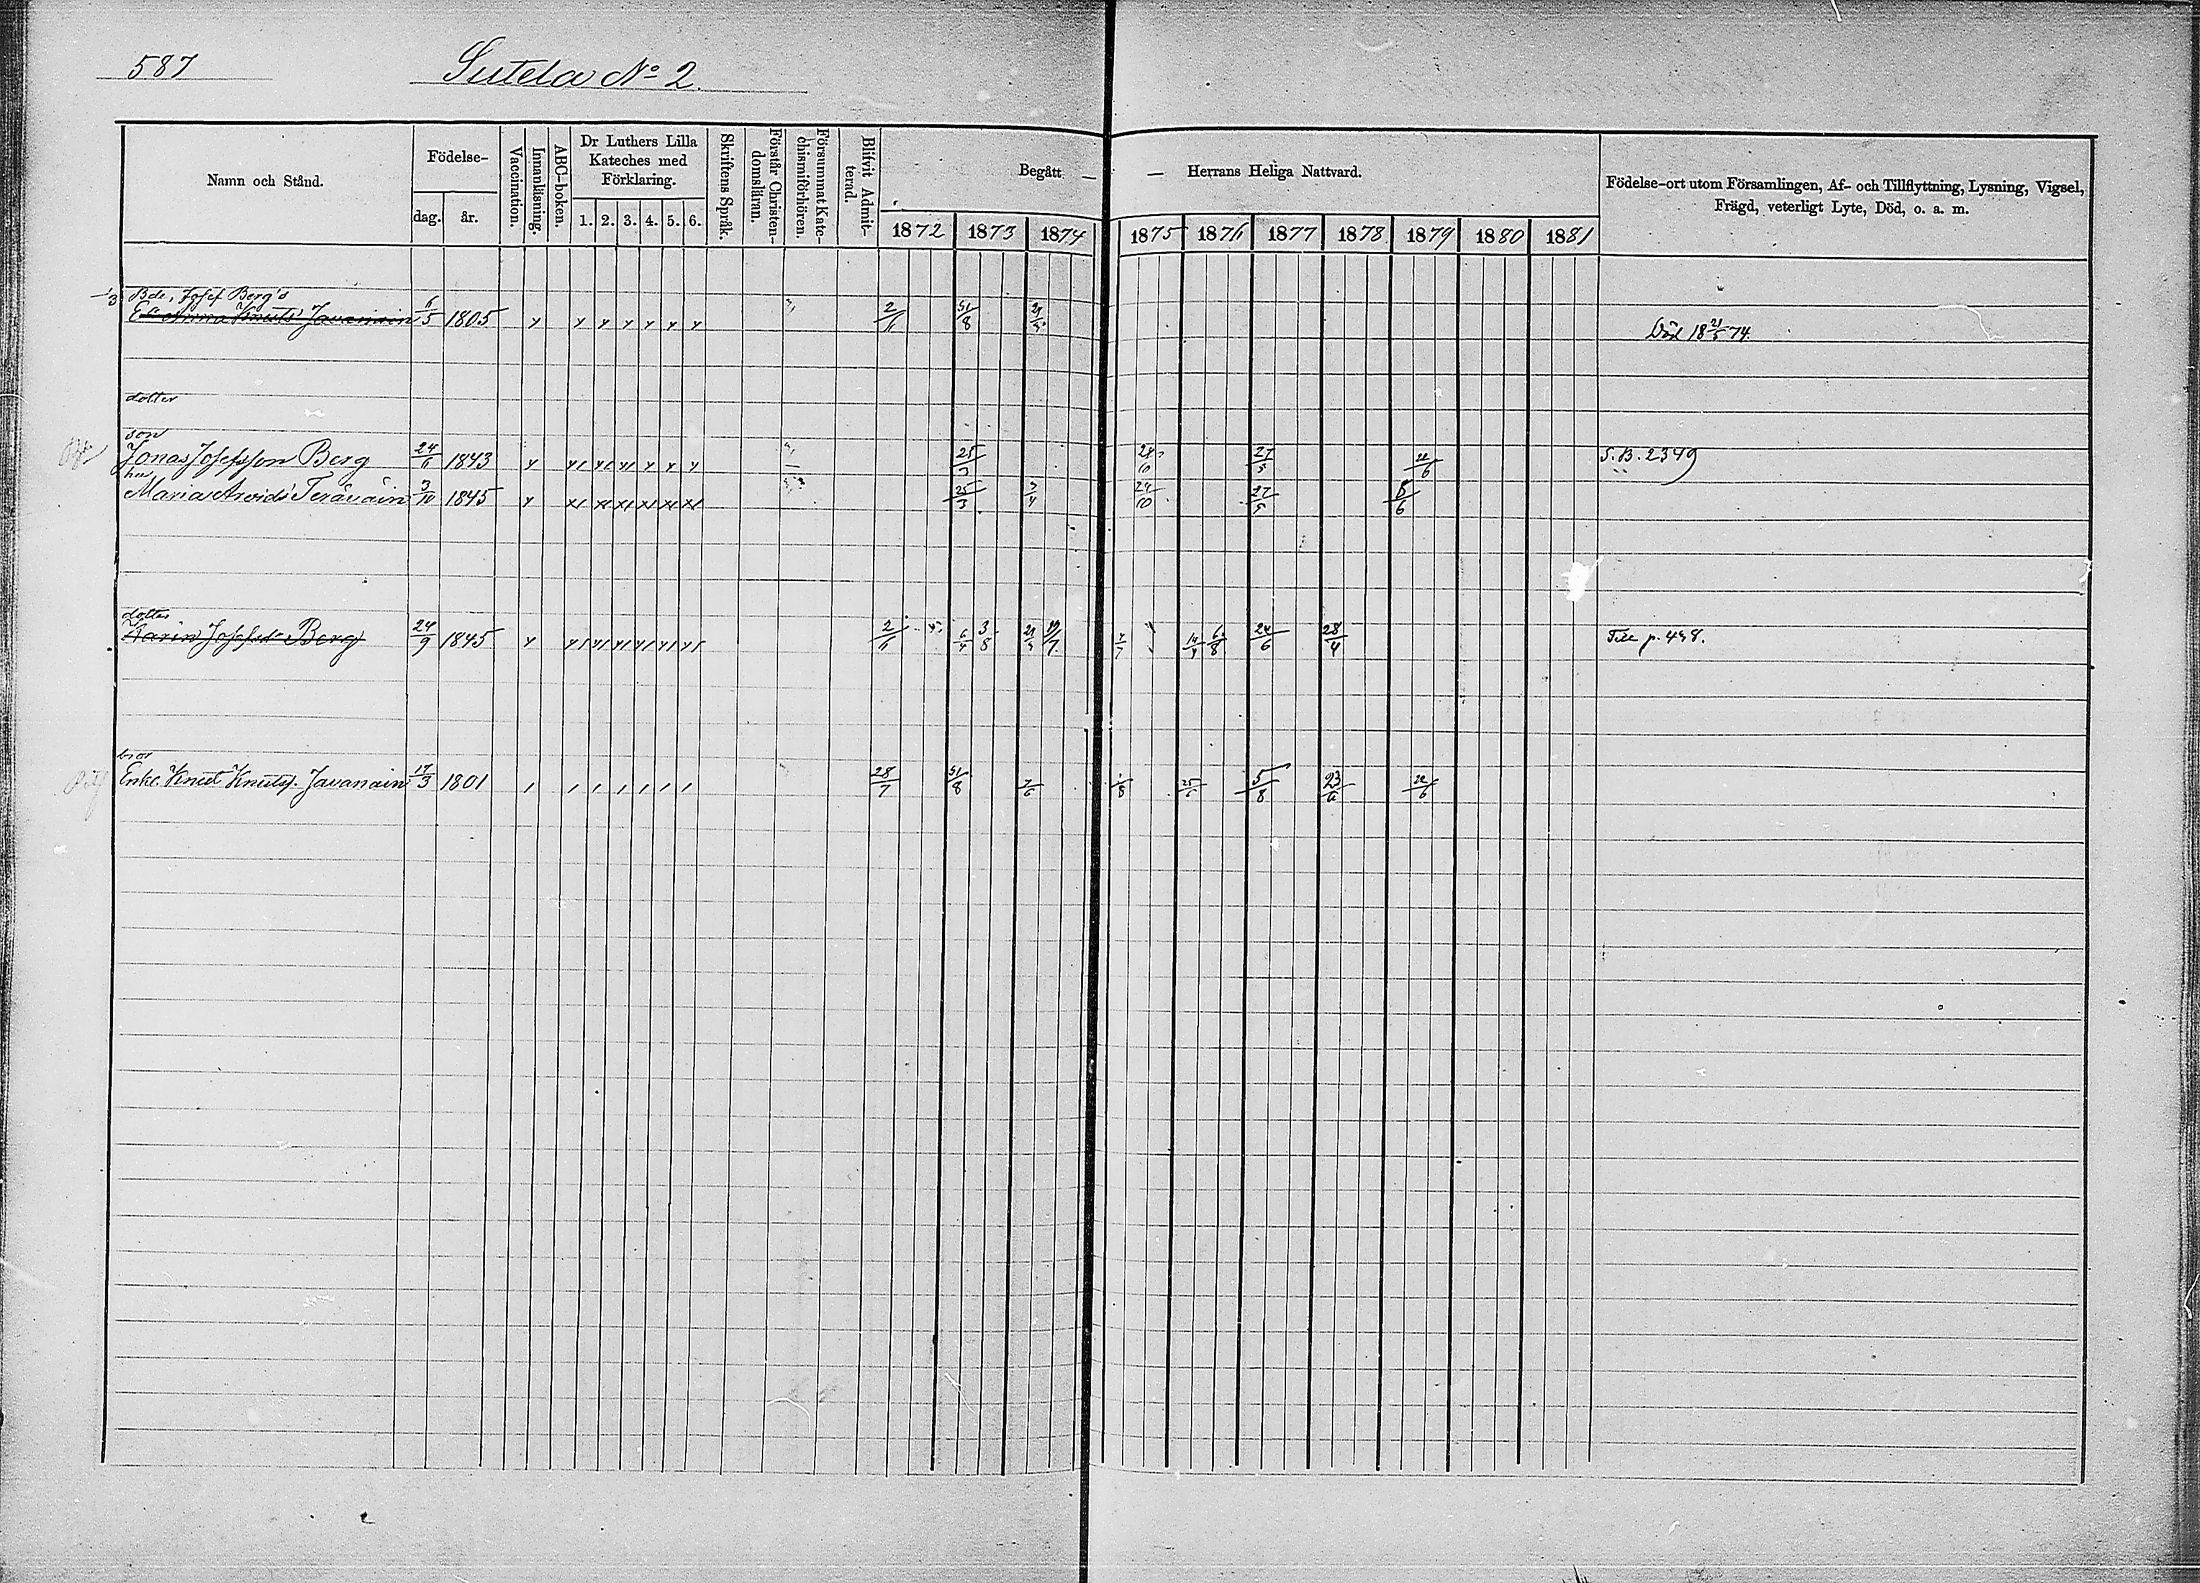 587
Sutela No 2.
Namn och Stånd.
Födelse-
dag. år.
Vaccination.
Innanläsning.
ABC-boken.
Dr Luthers Lilla
Kateches med
Förklaring.
1. 2. 3. 4. 5. 6.
Skriftens Språk.
Förstår Christen-
domsläran.
Försummat Kate-
chismiförhören.
Blifvit Admit-
terad.
Begått — — Herrans Heliga Nattvard.
1872 1873 1874 1875 1876 1877 1878 1879 1880 1881
Födelse-ort utom Församlingen, Af- och Tillflyttning, Lysning, Vigsel,
Frägd, veterligt Lyte, Död, o. a. m.
Bde, Josef Berg's
E. Anna Knuts Javanain 6/5 1805 2/11 31/8
Död 18 21/5 74.
dotter
son
Jonas Josefsson Berg 24/6 1843 25/3 24/10 27/5 22/6 S.B. 2349
hu
Maria Arvids Teränäin 3/10 1845 25/3 7/4 24/10 27/5 8/6
dotter
Karin Josefsd. Berg 24/9 1845 2/11 6/4 3/8 19/7 7/7 6/8 24/6 28/4 Till p. 498.
bror
Enkl. Knut Knutss. Javanain 17/3 1801 28/7 31/8 7/6 1/8 25/6 5/8 23/6 22/6